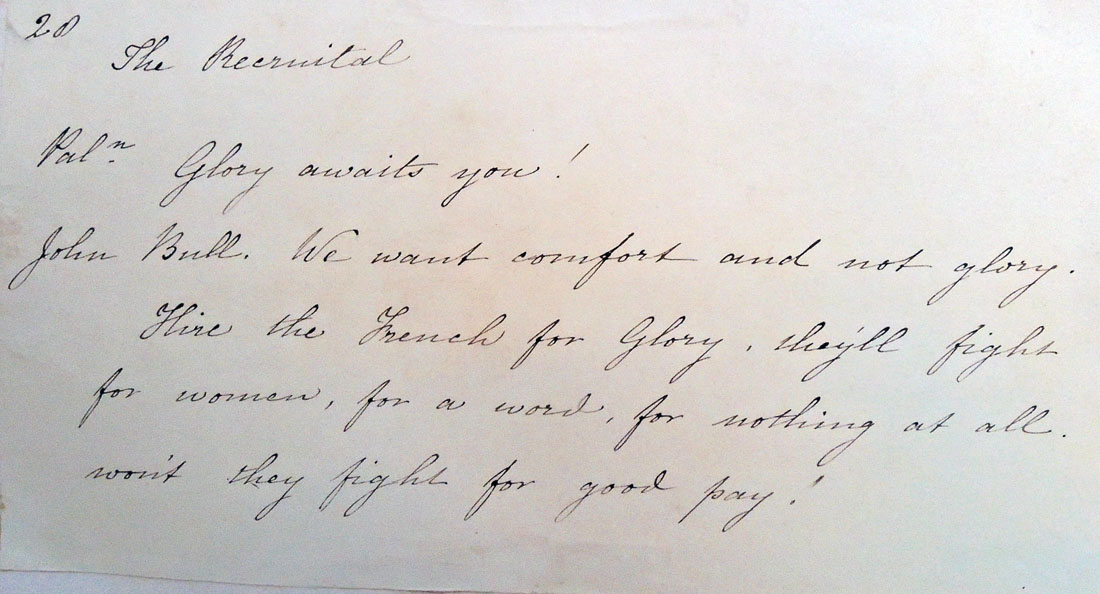 28
The Recruital
Pal n
Glory awaits you!
John Bull. We want comfort and not glory.
Hire the French for Glory, they'll fight
for women, for a word, for nothing at all.
won't they fight for good pay!